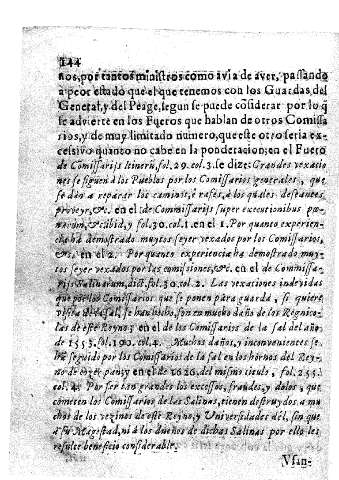 144
ños, por tantos ministros como avia de aver, passando
a peor estado que el que tenemos con los Guardas, del
General, y del Peage, segun se puede cõsiderar por lo q̃
se advierte en los Fueros que hablan de otros Comissa
rios, y de muy limitado numero, que este otro seria ex-
cessivo quanto no cabe en la ponderacion, en el Fuero
de Comissarijs Itinerũ, fol. 29. col. 3. se dize: Grandes vexacio
nes se siguen à los Pueblos por los Comissarios generales, que
se dàn a reparar los caminos, è rafes, à los quales desseantes
proveyr, &c. en el de Comissarijs super executionibus pœ-
narum, & ibid, y fol. 30. col. 1. en el 1. Por quanto experien-
cia ha demostrado muytos seyer vexados por los Comissarios,
&c. en el 2. Por quanto experiencia ha demostrado muy-
tos seyer vexados por las comissiones, &c. en el de Comissa-
rijs Salinarum, dict. fol. 30. col. 2. Las vexaciones indevidas
que por los Comissarios que se ponen para guarda, si quiere
de la sal, se han hecho, son en mucho daño de los Regnico-
las de este Reyno; y en el de los Comissarios de la sal del año
de 1553. fol. 190. col. 4. Muchos daños, y inconvenientes se
han seguido por los Comissarios de la sal en los hornos del Rey-
no de cozer pan; y en el de 1626. del mismo titulo, fol. 255.
col. 4. Por ser tan grandes los excessos, fraudes, y dolos, que
cometen los Comissarios de las Salinas, tienen destruydos a mu-
chos de los vezinos de este Reyno, y Universedades dèl, sin que
a su Magestad, ni à los dueños de dichas Salinas por ello les
resulte beneficio considerable.
Vsan-